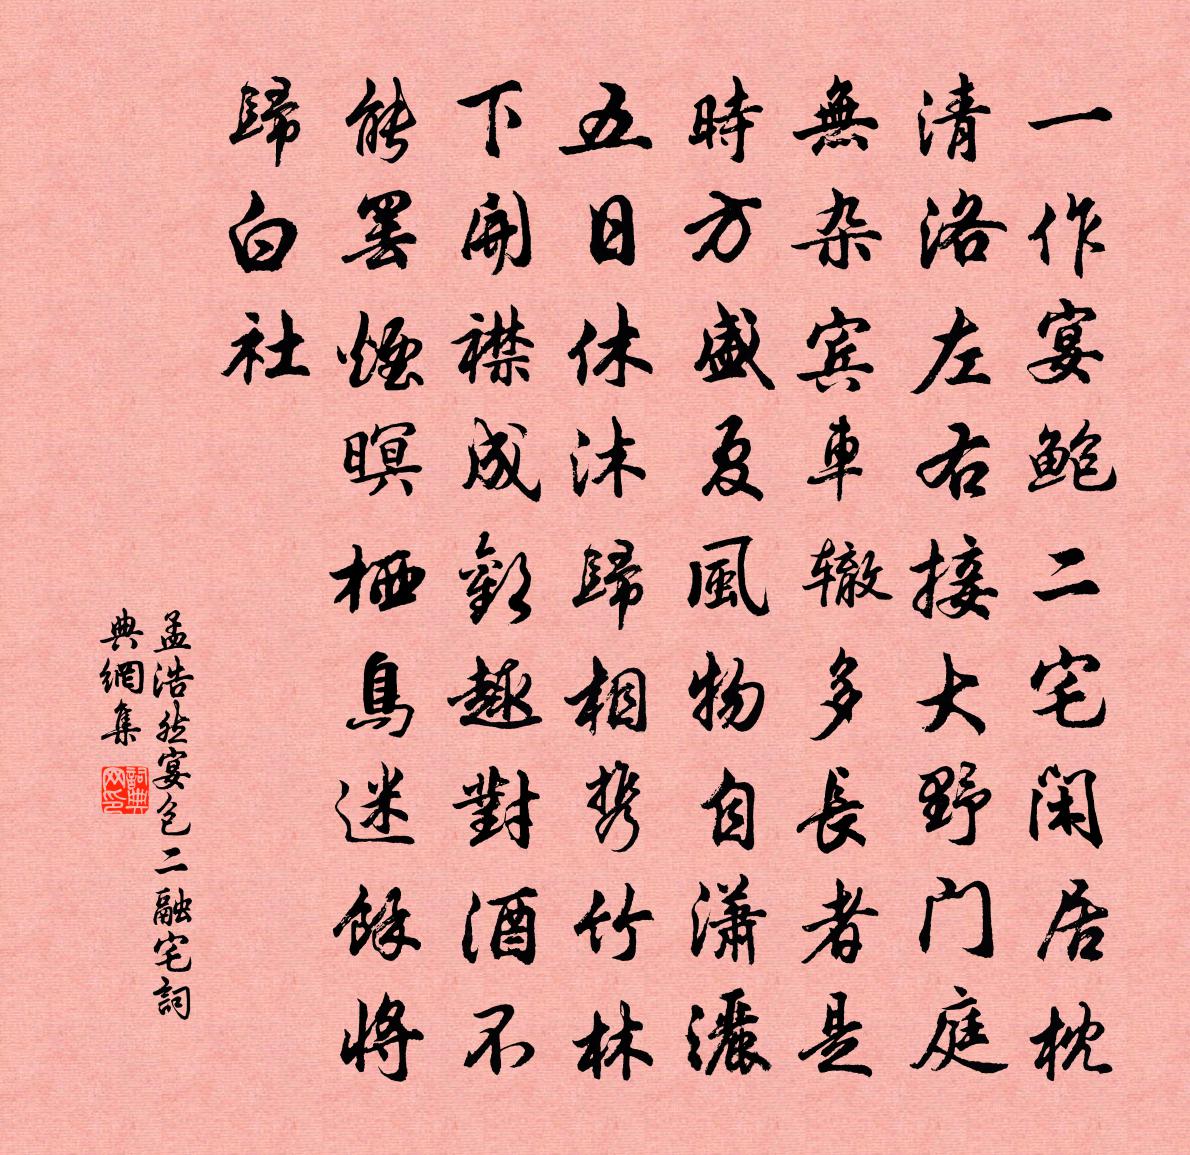 一作宴鮑二宅閑居枕
清洛左右接大野门庭
無杂宾車辙多長者是
時方盛夏風物自潇灑
五日休沐歸相携竹林
下開襟成歡趣對酒不
能罢煙暝栖鳥迷餘將
歸白社
孟浩然宴包二融宅詞
典網集
詞典
网印